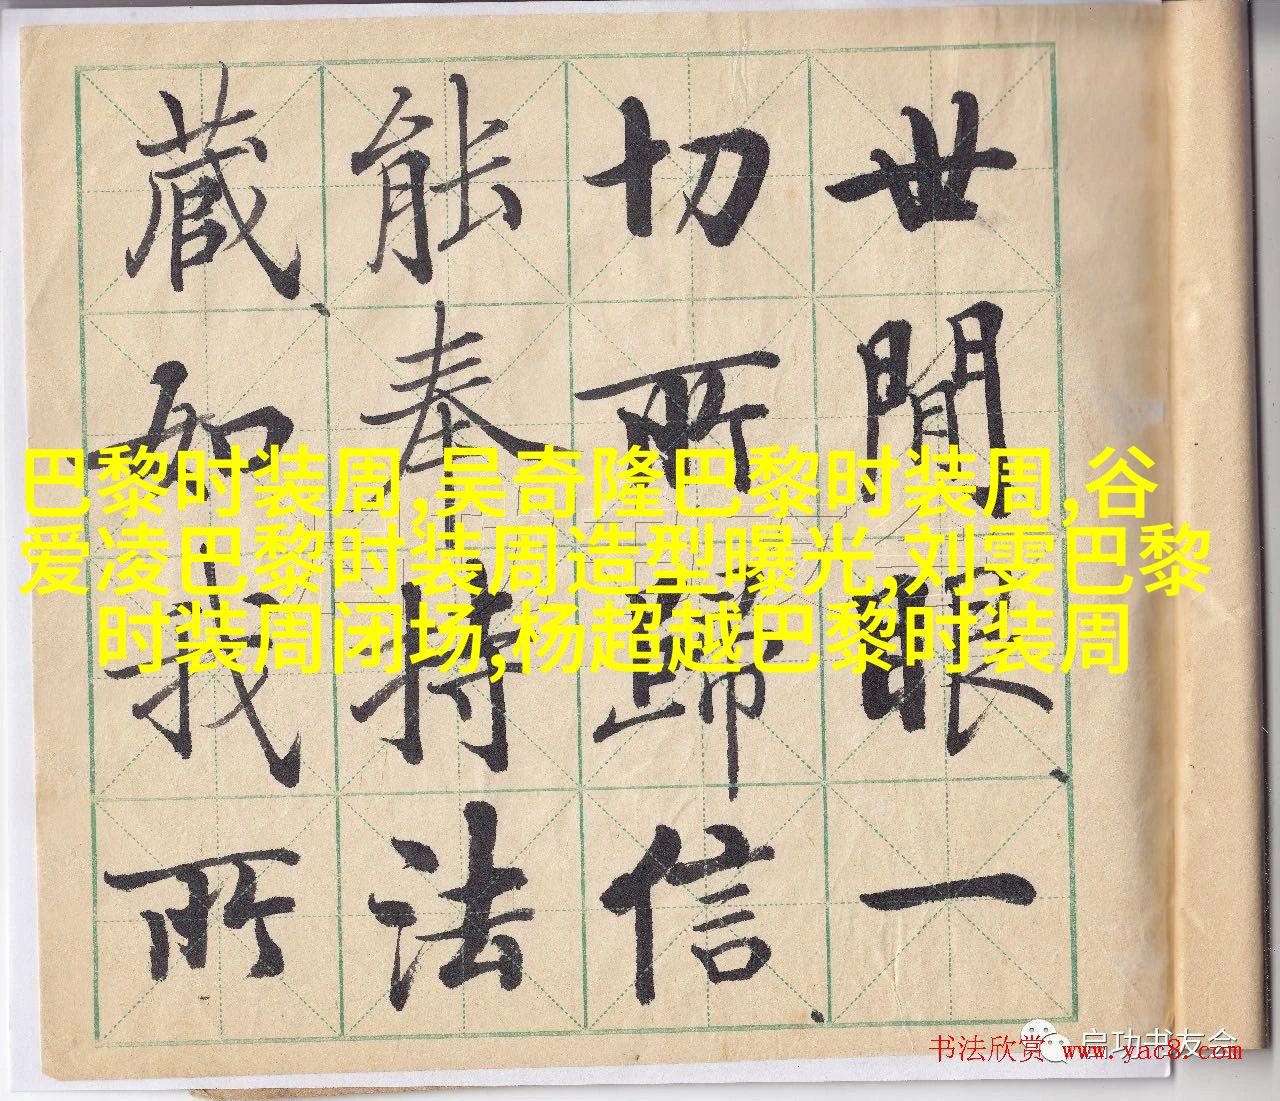 世間眼一
切所歸信
能奉持法
藏如我所
巴黎时装周,吴奇隆巴黎时装周,谷
爱凌巴黎时装周造型曝光,刘雯巴黎
时装周闭场,杨超越巴黎时装周
启功书友会
书法欣赏 www.yac8.com